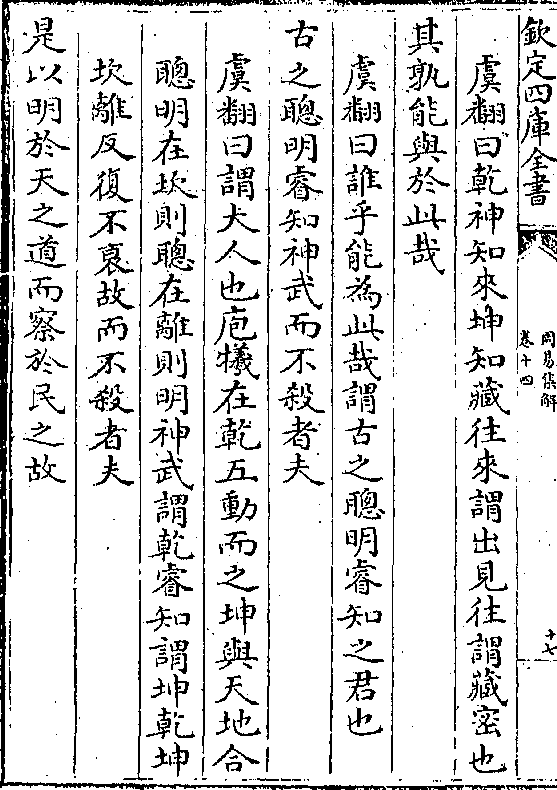 欽定四庫全書
周易集解
卷十四
十七
虞翻曰乾神知來坤知藏往來謂出見往謂藏密也
其孰能與於此哉
虞翻曰誰乎能為此哉謂古之聰明睿知之君也
古之聰明睿知神武而不殺者夫
虞翻曰謂大人也庖犧在乾五動而之坤與天地合
聰明在坎則聰在離則明神武謂乾睿知謂坤乾坤
坎離反復不衰故而不殺者夫
是以明於天之道而察於民之故